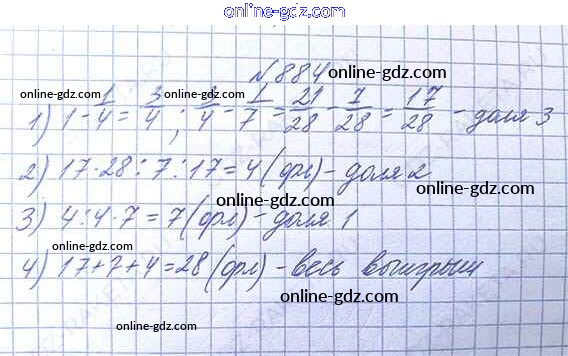 online-gdz.com
N 884 online-gdz.com
online-gdz.com
1) 1 - 1/4 = 3/4 ; 3/4 - 1/7 = 21/28 - 7/28 = 17/28 - доля 3
online-gdz.com
online-gdz.com
2) 17·28:7:17=4(фл) - доля 2
online-gdz.com
3) 4:4·7=7(фл) - доля 1
online-gdz.com
4) 17+7+4=28(фл) - весь выигрыш
online-gdz.com
online-gdz.com